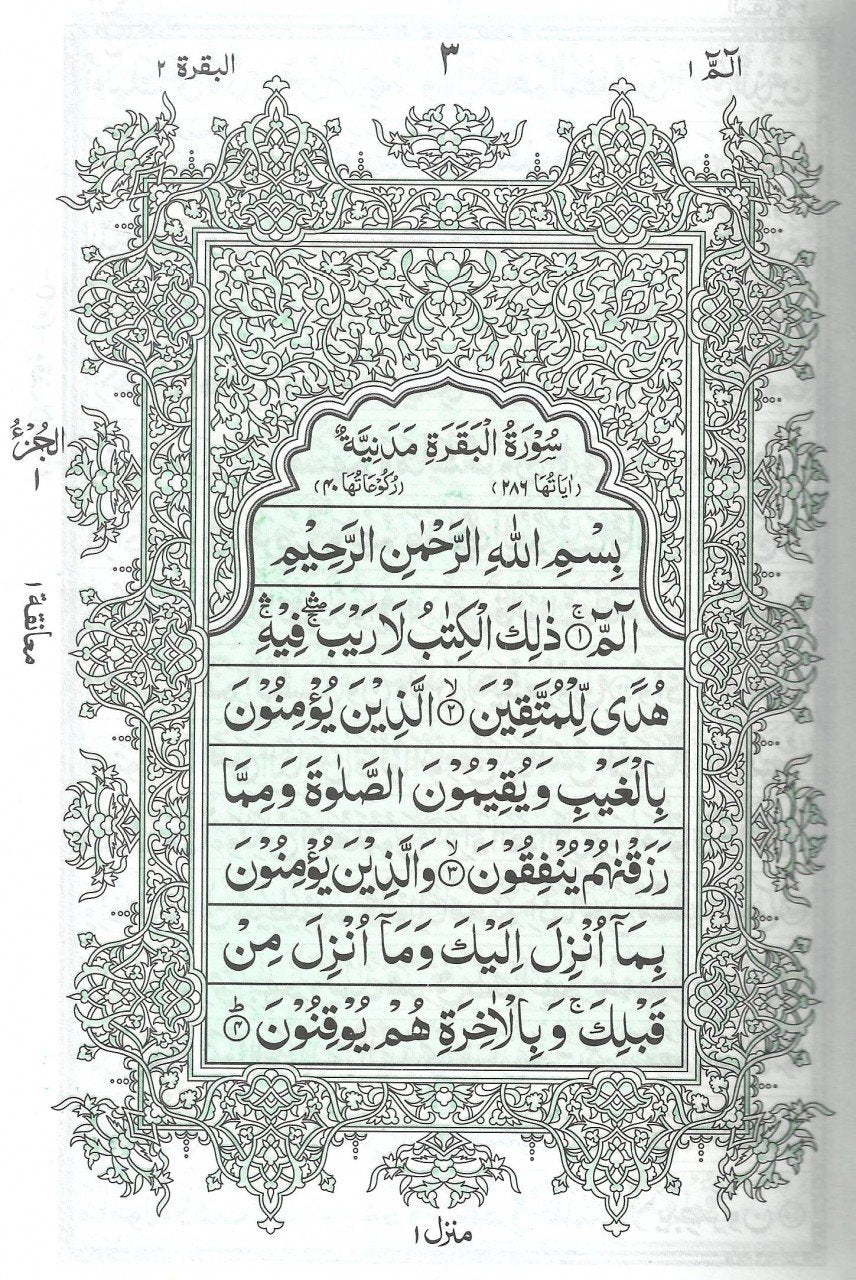 الٓمّٓ ١
٣
البقرة ٢
سُوْرَةُ الْبَقَرَةِ مَدَنِيَّةٌ
(اٰيَاتُهَا ٢٨٦) (رُكُوْعَاتُهَا ٤٠)
بِسْمِ اللّٰهِ الرَّحْمٰنِ الرَّحِيْمِ
الٓمّٓ ۚ ﴿١﴾ ذٰلِكَ الْكِتٰبُ لَا رَيْبَ ۛۖۚ فِيْهِ ۛۚ
هُدًى لِّلْمُتَّقِيْنَ ۙ ﴿٢﴾ الَّذِيْنَ يُؤْمِنُوْنَ
بِالْغَيْبِ وَيُقِيْمُوْنَ الصَّلٰوةَ وَمِمَّا
رَزَقْنٰهُمْ يُنْفِقُوْنَ ۙ ﴿٣﴾ وَالَّذِيْنَ يُؤْمِنُوْنَ
بِمَآ اُنْزِلَ اِلَيْكَ وَمَآ اُنْزِلَ مِنْ
قَبْلِكَ ۚ وَبِالْاٰخِرَةِ هُمْ يُوْقِنُوْنَ ؕ ﴿٤﴾
الْجُزْءُ
١
معانقة ١
منزل ١